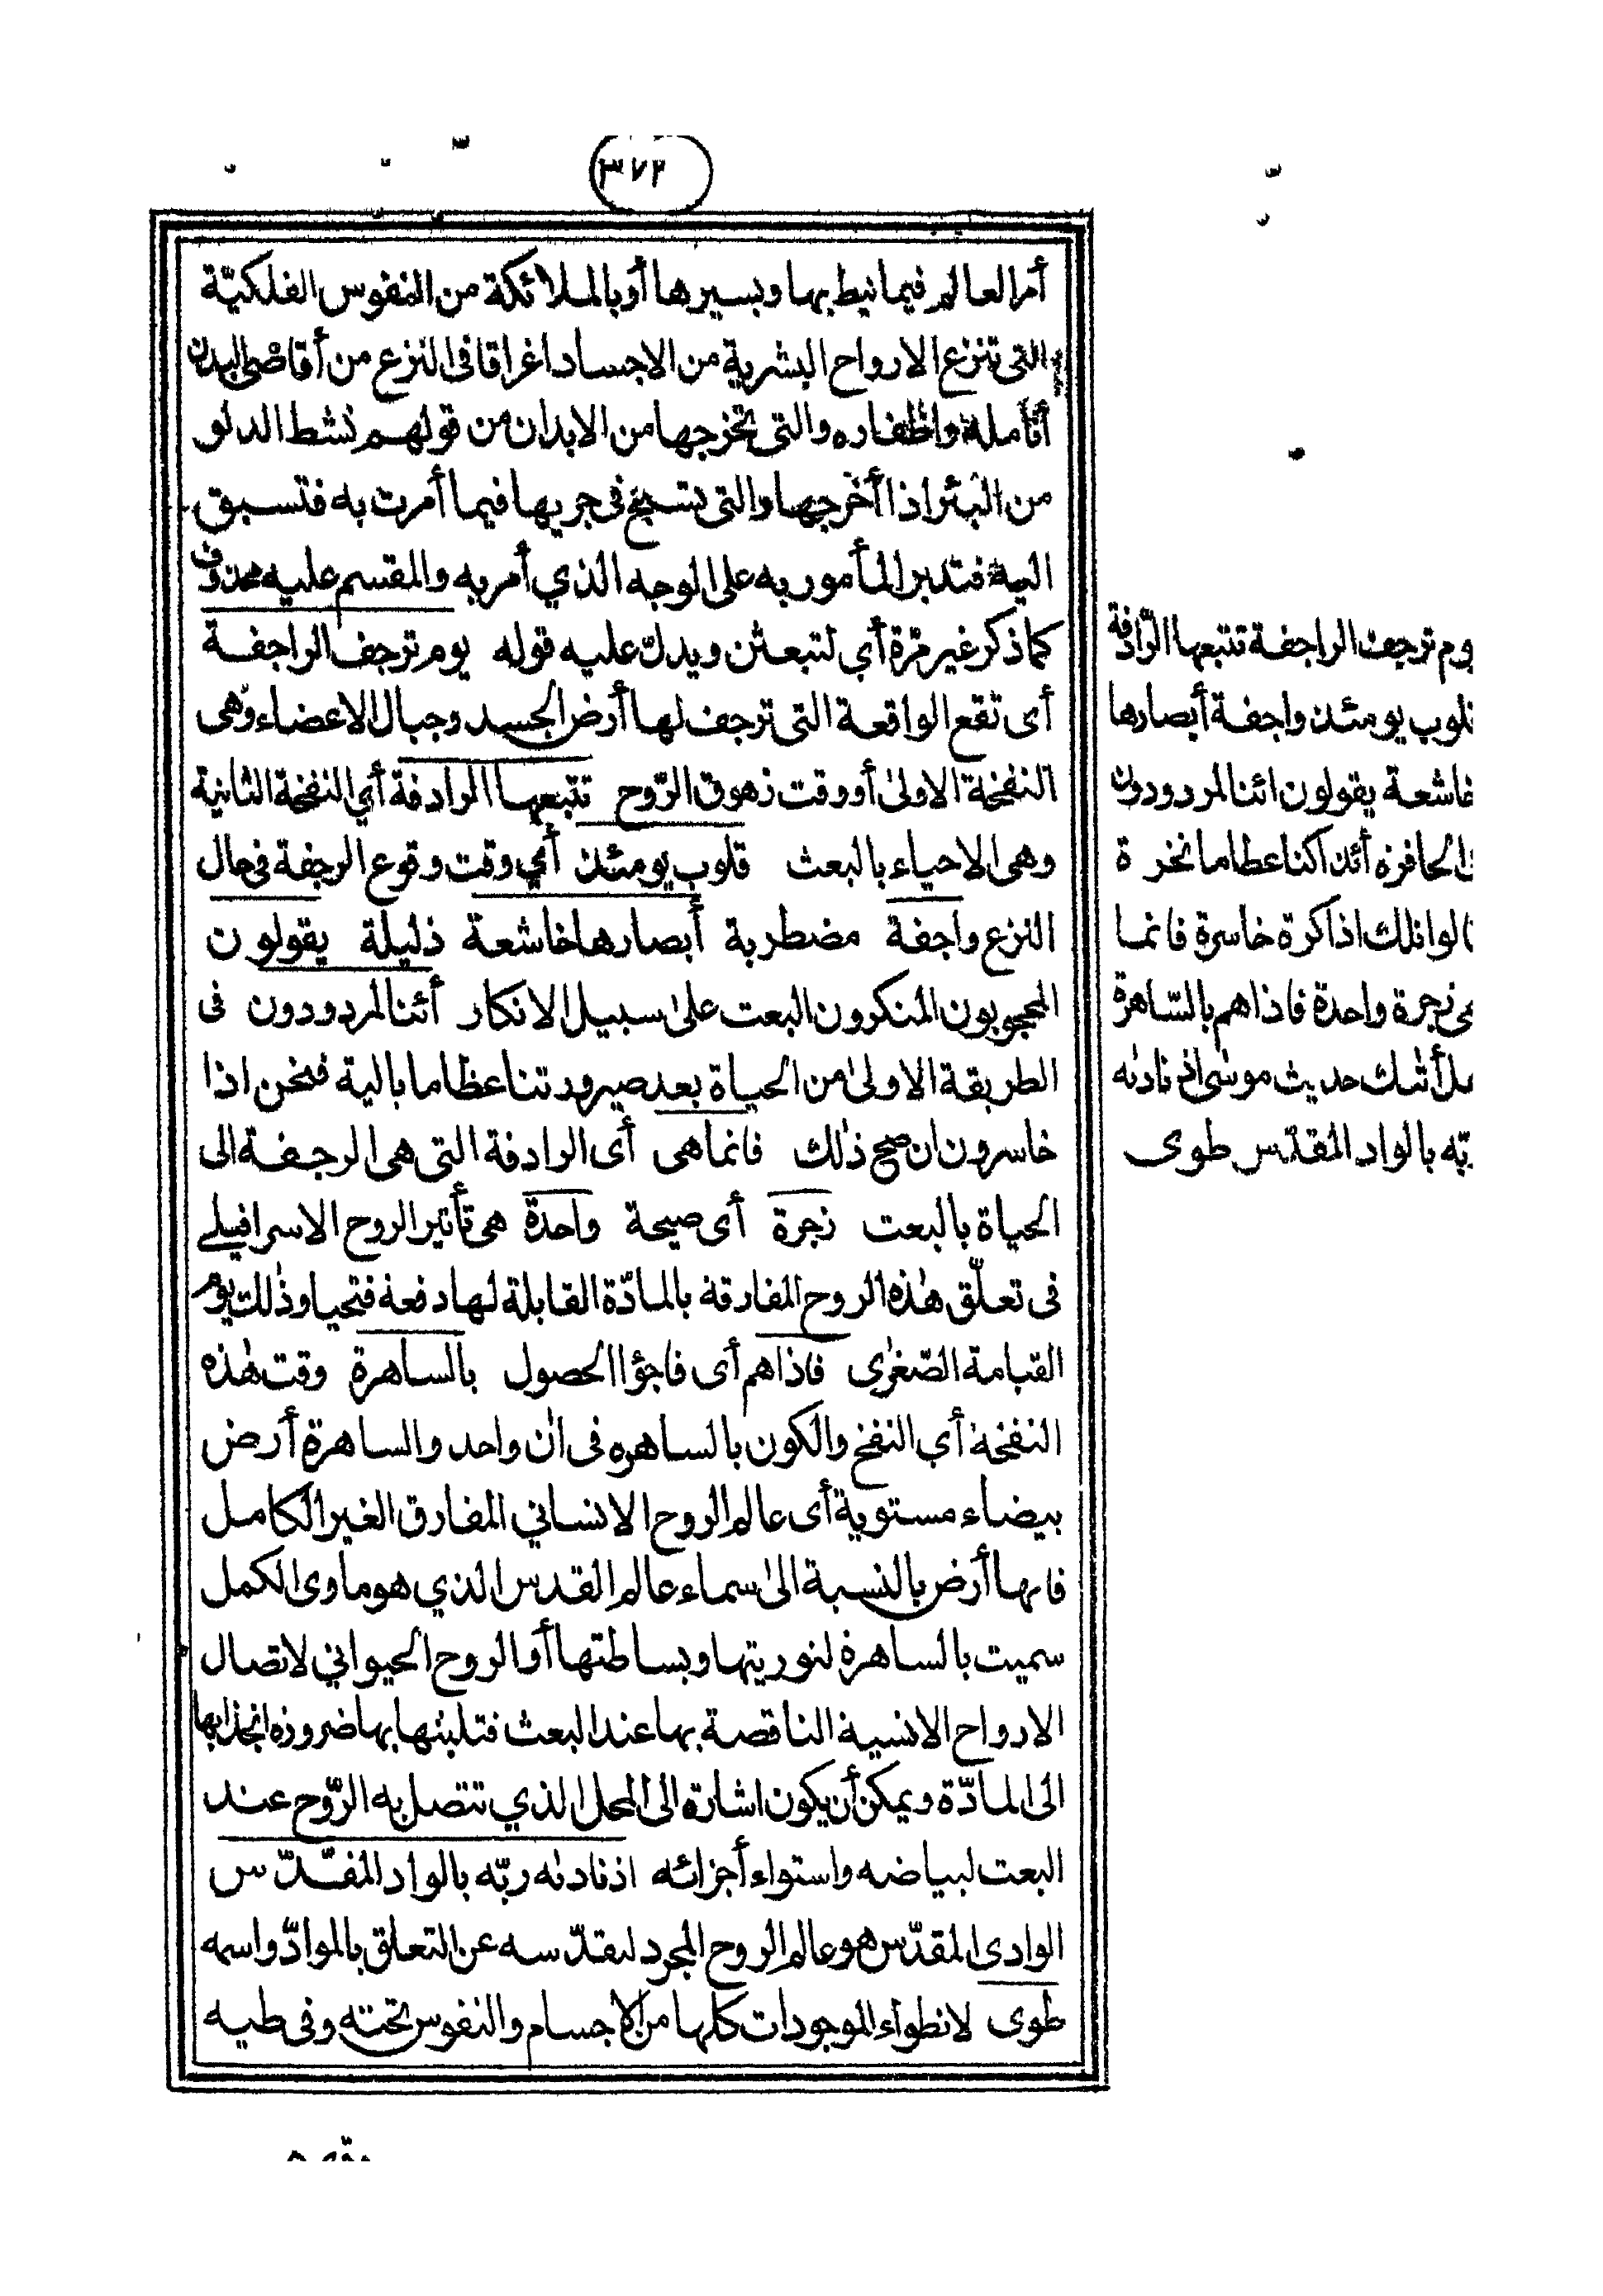 ٣٧٢
أمر العالم فيما نيط بها وبسيرها أو بالملائكة من النفوس الفلكيّة
التى تنزع الارواح البشرية من الاجساد اغراقا فى النزع من أقاصى البدن
أنامله وأظفاره والتى تخرجها من الابدان من قولهم نشط الدلو
من البئر اذا أخرجها والتى تسبح فى جريها فيما أمرت به فتسبق
اليه فتدبر المأمور به على الوجه الذي أمر به والمقسم عليه محذوف
كما ذكر غير مرّة أي لتبعثن ويدلّ عليه قوله يوم ترجف الراجفة
أى تقع الواقعة التى ترجف لها أرض الجسد وجبال الاعضاء وهى
النفخة الاولى أو وقت زهوق الرّوح تتبعها الرادفة أي النفخة الثانية
وهى الاحياء بالبعث قلوب يومئذ أي وقت وقوع الرجفة فى حال
النزع واجفة مضطربة أبصارها خاشعة ذليلة يقولون
المحجوبون المنكرون البعث على سبيل الانكار أئنا لمردودون فى
الطريقة الاولى من الحياة بعد صيرورتنا عظاما بالية فنحن اذا
خاسرون ان صح ذٰلك فانما هى أى الرادفة التى هى الرجفة الى
الحياة بالبعث زجرة أى صيحة واحدة هى تأثير الروح الاسرافيلي
فى تعلّق هٰذه الروح المفارقة بالمادّة القابلة لها دفعة فتحيا وذٰلك يوم
القيامة الصّغرى فاذا هم أى فاجؤا الحصول بالساهرة وقت هٰذه
النفخة أي النفخ والكون بالساهره فى اٰن واحد والساهرة أرض
بيضاء مستوية أى عالم الروح الانساني المفارق الغير الكامل
فانها أرض بالنسبة الى سماء عالم القدس الذي هو ماوى الكمل
سميت بالساهرة لنوريتها وبساطتها أو الروح الحيواني لاتصال
الارواح الانسية الناقصة بها عند البعث فتلبثها بها ضرورة انجذابها
الى المادّة ويمكن أن يكون اشارة الى المحل الذي تتصل به الرّوح عند
البعث لبياضه واستواء أجزائه اذ نادىٰه ربّه بالواد المقدّس
الوادى المقدّس هو عالم الروح المجرد لتقدّسه عن التعلق بالموادّ واسمه
طوى لانطواء الموجودات كلها من الاجسام والنفوس تحته وفى طيه
يوم ترجف الراجفة تتبعها الرّادفة
قلوب يومئذ واجفة أبصارها
خاشعة يقولون ائنا لمردودون
فى الحافرة أئذا كنا عظاما نخرة
قالوا تلك اذا كرة خاسرة فانما
هى زجرة واحدة فاذا هم بالسّاهرة
هل أتٰك حديث موسى اذ نادىٰه
ربّه بالواد المقدّس طوى